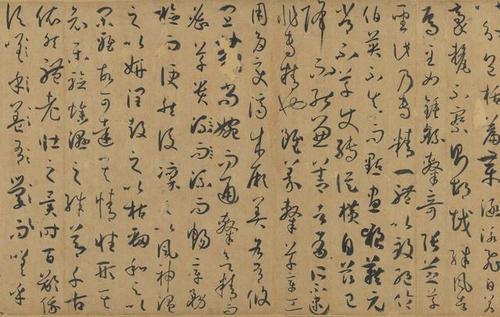 八分包括篇章涵泳飛白若
毫釐不察則胡越殊風者
焉至如鍾繇隸奇張芝草
聖此乃專精一體以致絕倫
伯英不真而點畫狼藉元
常不草使轉縱橫自茲已
降不能兼善者有所不逮
非專精也雖篆隸草章工
用多變濟成厥美各有攸
宜篆尚婉而通隸欲精而
密草貴流而暢章務
檢而便然後凜之以風神溫
之以妍潤鼓之以枯勁和之以
閑雅故可達其情性形其
哀樂驗燥濕之殊節千古
依然體老壯之異時百齡俄
頃嗟乎